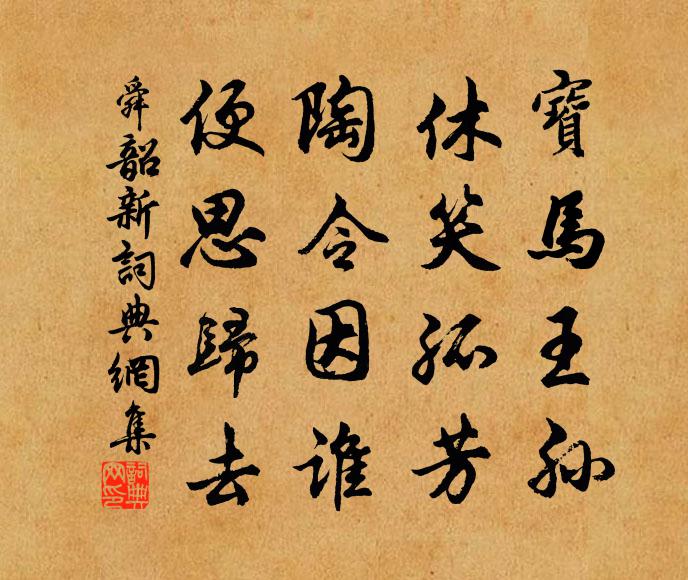 寶馬王孫
休笑孤芳
陶令因誰
便思歸去
舜韶新詞典網集
詞典
网印